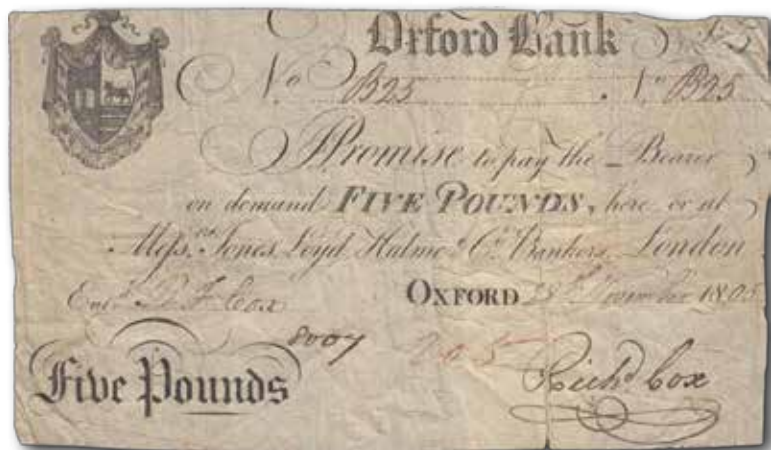 Oxford Bank £5
No. B25 No. B25
I Promise to pay the Bearer
on demand FIVE POUNDS, here or at
Messrs. Jones, Loyd, Hulme & Co. Bankers, London
Entd. R. F. Cox OXFORD 28th November 1805
8007
Five Pounds Richd Cox